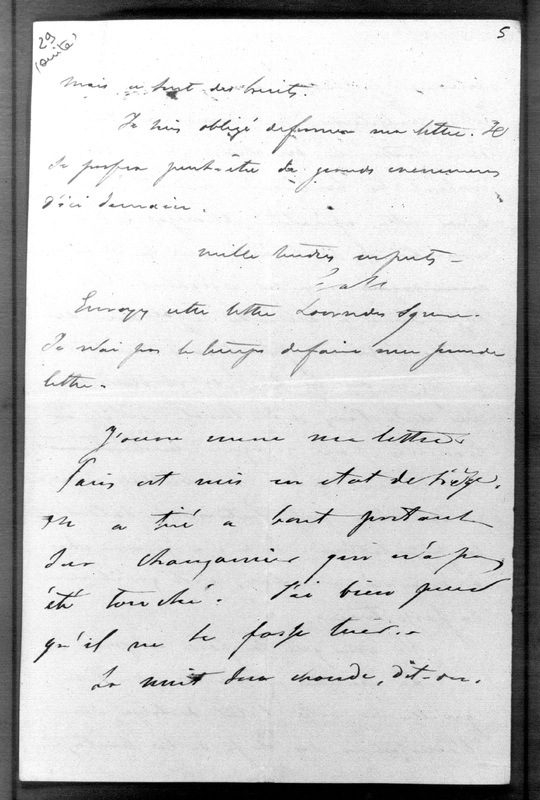 29
(suite)
5
mais ce sont des bruits.
Je suis obligé de fermer ma lettre. Il
se passera peut-être de grands evenemens
d'ici demain.
mille tendres respects -
Envoyez cette lettre Lowndes Square.
Je n'ai pas le temps de faire une seconde
lettre.
J'ouvre encore ma lettre.
Paris est mis en etat de siège.
On a tiré a bout portant
sur Changarnier qui n'a pas
été touché. J'ai bien peur
qu'il ne se fasse tuer. -
La nuit sera chaude, dit-on.